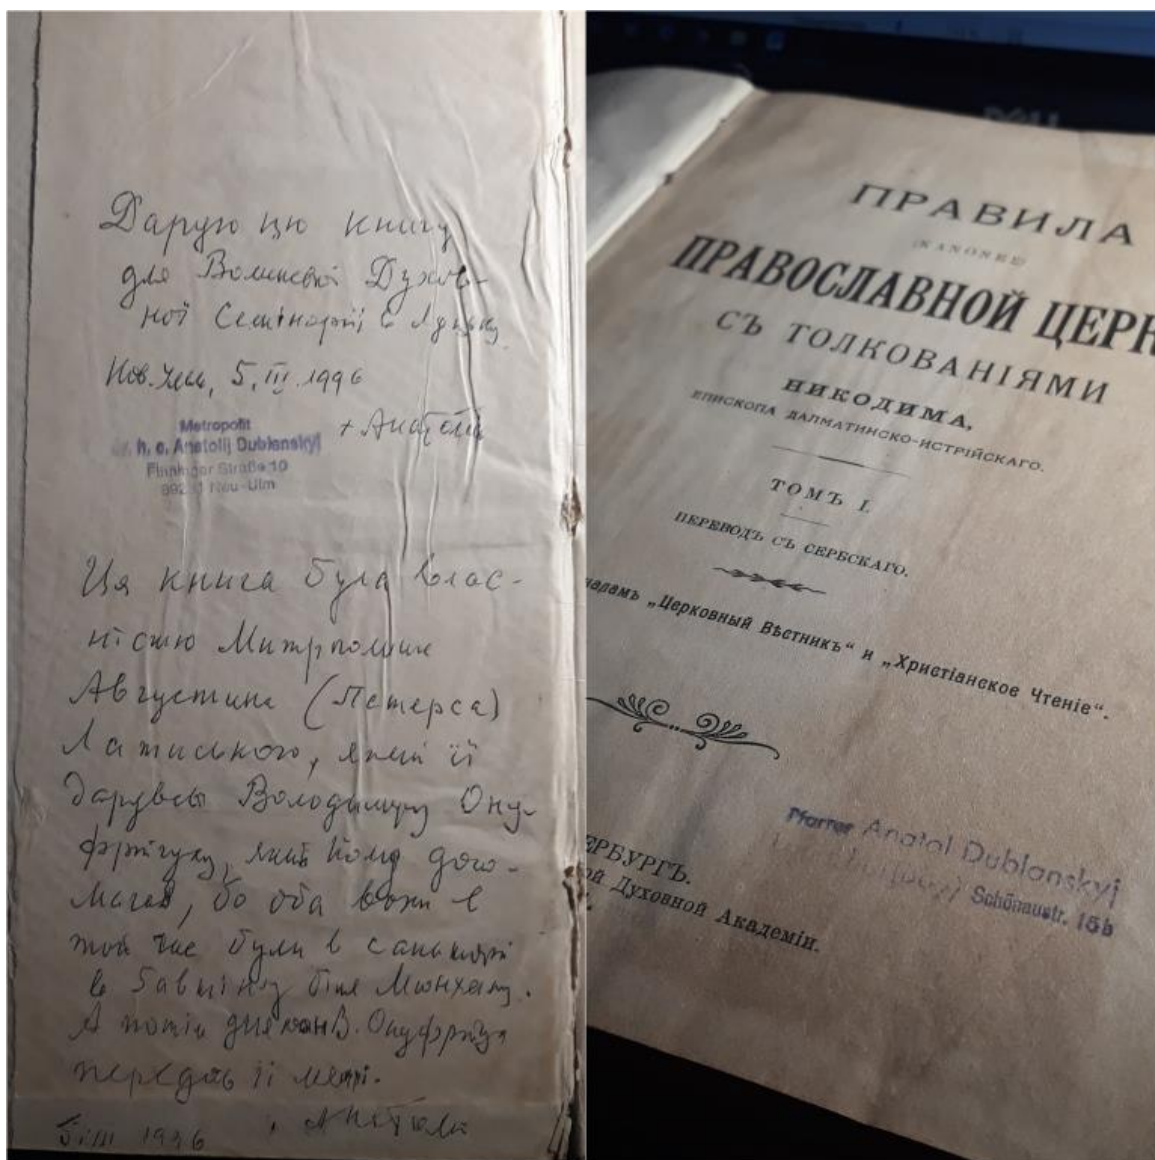 Дарую цю книгу
для Волинської Духов-
ної Семінарії в Луцьку
Нов. Ульм, 5. III. 1996
+ Анатолій
Metropolit
h. c. Anatolij Dublanskyj
Finninger Straße 10
Neu-Ulm
Ця книга була влас-
ністю Митрполита
Августина (Петерса)
Латиського, який її
дарував Володимиру Ону-
фрійчуку, який йому допо-
магав, бо оба вони в
той час були в санаторії
в Гавтінгу біля Мюнхену.
А потім диякон В. Онуфрійчук
передав її мені.
5 III 1996
Анатолій
ПРАВИЛА
(KANONEΣ)
ПРАВОСЛАВНОЙ ЦЕРК
СЪ ТОЛКОВАНІЯМИ
НИКОДИМА,
ЕПИСКОПА ДАЛМАТИНСКО-ИСТРІЙСКАГО.
ТОМЪ I.
ПЕРЕВОДЪ СЪ СЕРБСКАГО.
„Церковный Вѣстникъ“ и „Христіанское Чтеніе“.
Pfarrer Anatol Dublanskyj
Schönaustr. 15b
ЕРБУРГЪ.
ой Духовной Академіи.
DELL